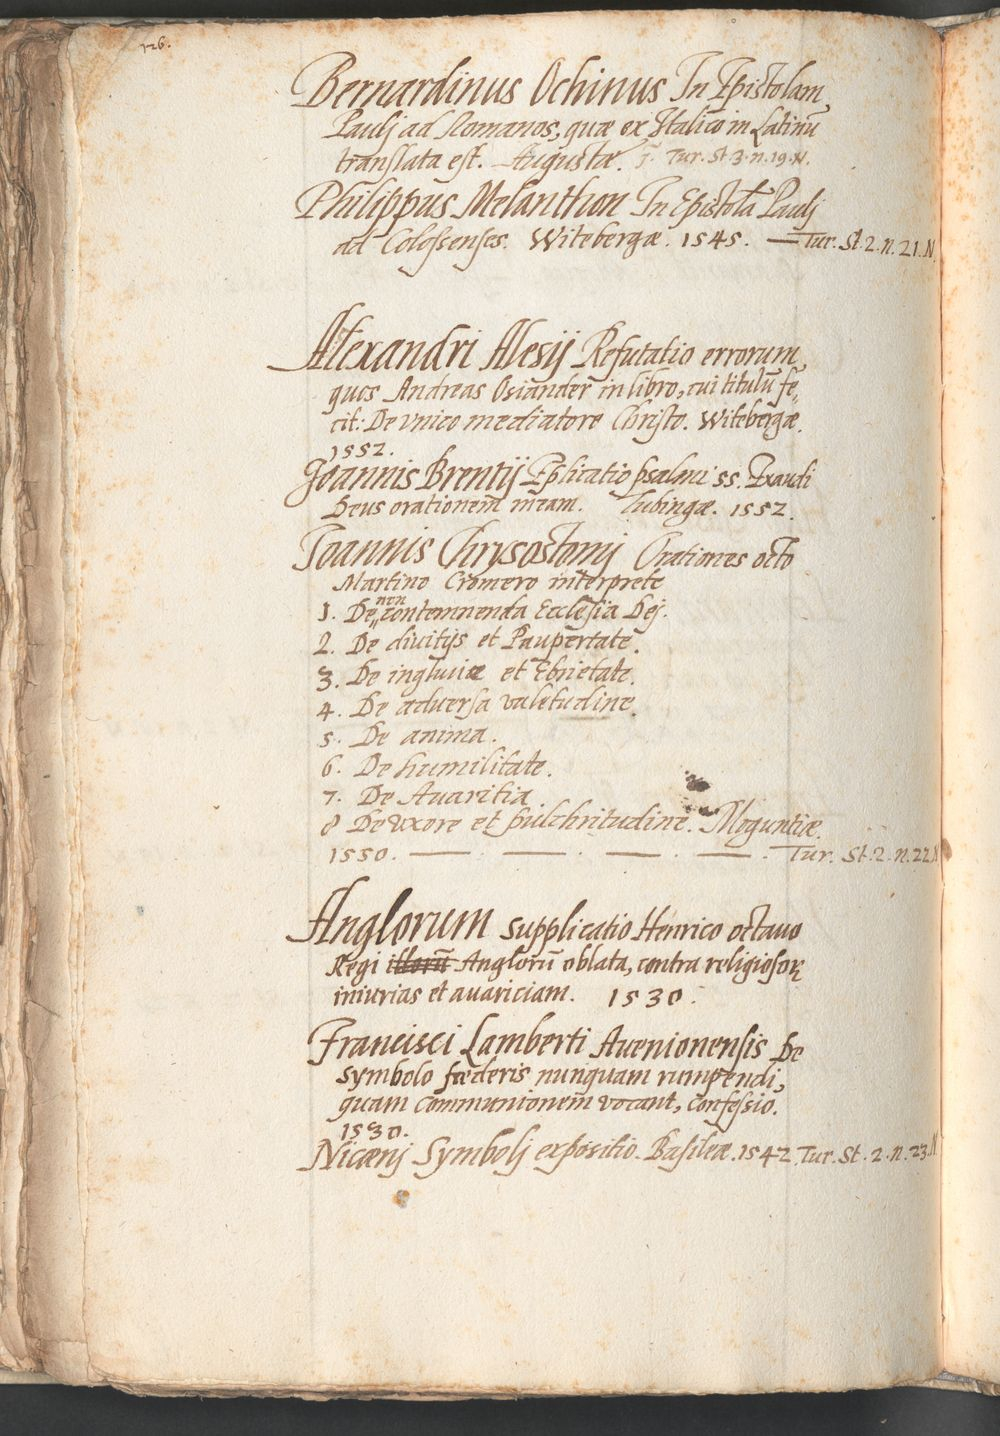 126.
Bernardinus Ochinus In Epistolam
Paulj ad Romanos, quæ ex Italico in Latinū
translata est. Augustæ. Tur. St. 3. n. 19. N.
Philippus Melanthon In Epistolā Paulj
ad Colossenses. Witebergæ. 1545. — Tur. St. 2. n. 21. N.
Alexandri Alesij Refutatio errorum,
quos Andreas Osiander in libro, cui titulū fe„
cit: De vnico mediatore Christo. Witebergæ.
1552.
Joannis Brentij Explicatio psalmi 55. Exaudi
Deus orationem meam. Tubingæ. 1552.
Joannis Chrysostomj Orationes octo
Martino Cromero interprete
1. De non contemnenda Ecclesia Dej.
2. De diuitijs et Paupertate.
3. De ingluuie et Ebrietate.
4. De aduersa valetudine.
5. De anima.
6. De humilitate.
7. De Auaritia.
8 De vxore et pulchritudine. Moguntiæ.
1550. — . — . — . — . Tur. St. 2. n. 22. N
Anglorum supplicatio Henrico octauo
Regi illorū Anglorū oblata, contra religiosoꝝ
iniurias et auariciam. 1530.
Francisci Lamberti Auenionensis De
symbolo fœderis nunquam rumpendi,
quam communionem vocant, confessio.
1530.
Nicænj Symbolj expositio. Basileæ. 1542. Tur. St. 2. n. 23. N